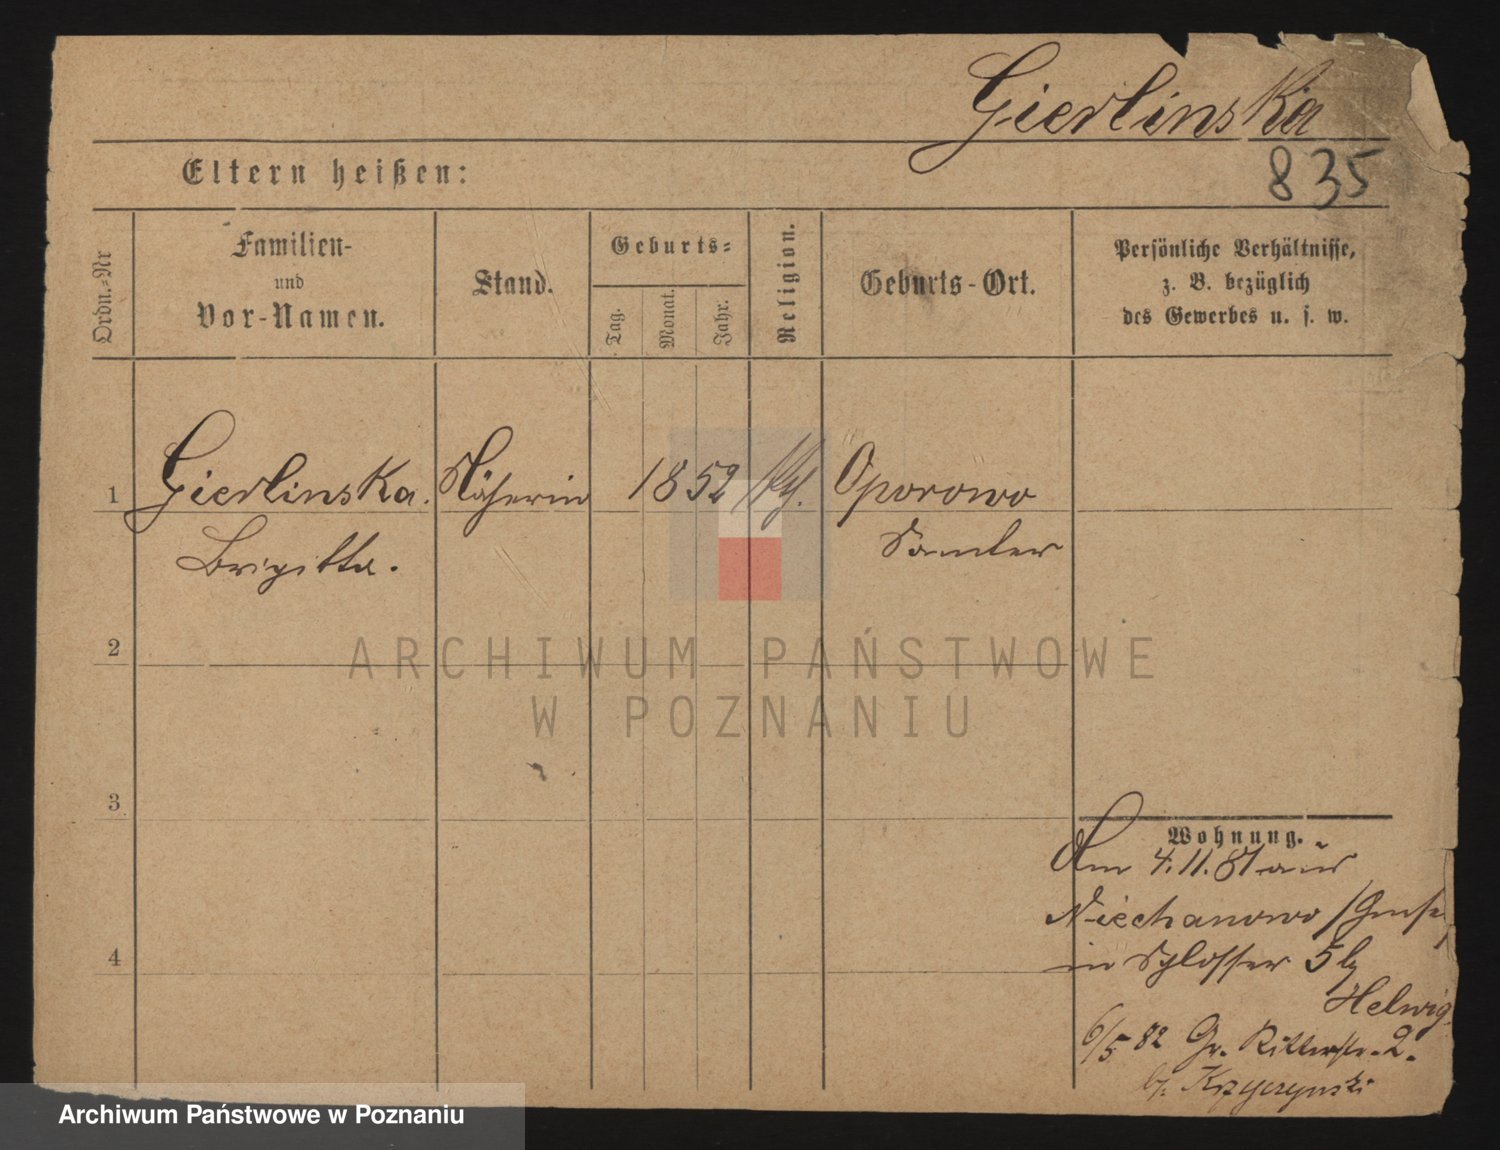 Gierlinska
835
Eltern heißen:
Ordn.-Nr
Familien-
und
Vor-Namen.
Stand.
Geburts-
Tag.
Monat.
Jahr.
Religion.
Geburts-Ort.
Persönliche Verhältnisse,
z. B. bezüglich
des Gewerbes u. s. w.
1
Gierlinska.
Brigitta.
Näherin
1852
Oporowo
Samter
2
3
4
Wohnung.
Am 4.11.81 aus
Niechanowo
in Schlosser 5 b
Helwig
6/5 82 Gr. Ritterstr. 2.
b. Krzyczynski
ARCHIWUM PAŃSTWOWE
W POZNANIU
Archiwum Państwowe w Poznaniu